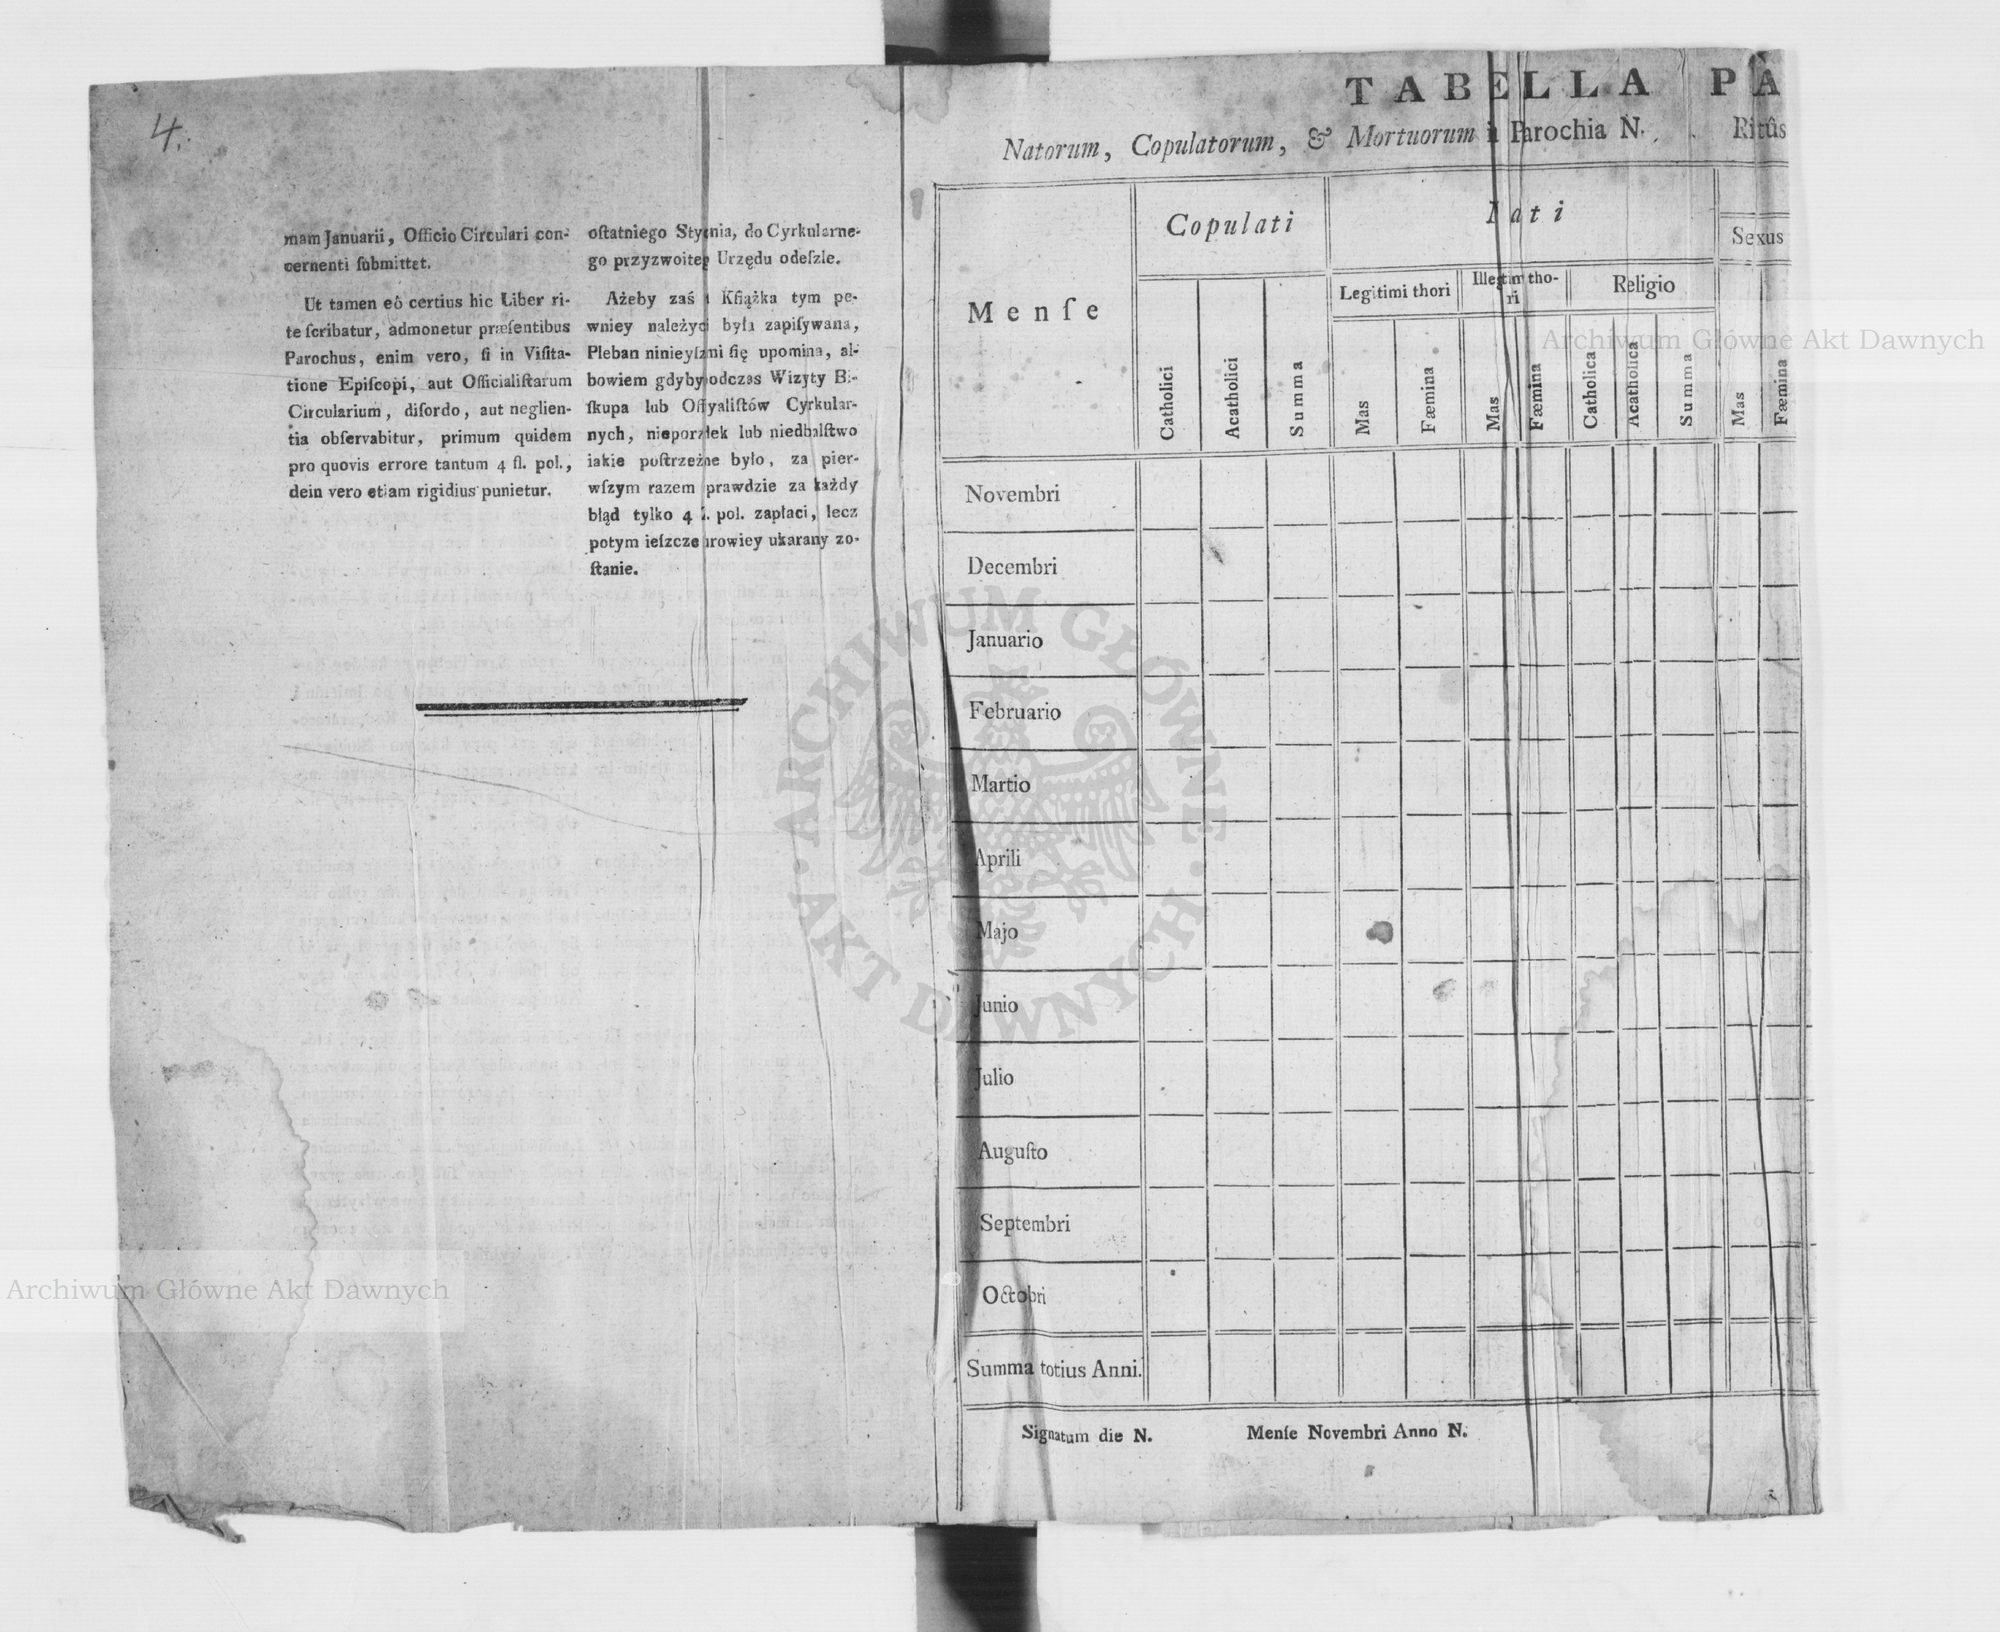 4.
mam Januarii, Officio Circulari con-
cernenti ſubmittet.
Ut tamen eò certius hic Liber ri-
te ſcribatur, admonetur præſentibus
Parochus, enim vero, ſi in Viſita-
tione Epiſcopi, aut Officialiſtarum
Circularium, diſordo, aut neglien-
tia obſervabitur, primum quidem
pro quovis errore tantum 4 fl. pol.,
dein vero etiam rigidius punietur.
oſtatniego Stycznia, do Cyrkularne-
go przyzwoiteg Urzędu odeſzle.
Ażeby zaś Kſiążka tym pe-
wniey należyci była zapiſywana,
Pleban ninieyſzmi ſię upomina, al-
bowiem gdyby podczas Wizyty Bi-
ſkupa lub Offyaliſtów Cyrkular-
nych, nieporządek lub niedbalſtwo
iakie poſtrzeżne było, za pier-
wſzym razem prawdzie za każdy
błąd tylko 4 pol. zapłaci, lecz
potym ieſzcze urowiey ukarany zo-
ſtanie.
TABELLA PA
Natorum, Copulatorum, & Mortuorum in Parochia N. Ritûs
Menſe
Copulati
Nati
Sexus
Legitimi thori
Illegitim tho-
ri
Religio
Catholici
Acatholici
Summa
Mas
Fæmina
Mas
Fæmina
Catholica
Acatholica
Summa
Mas
Fæmina
Novembri
Decembri
Januario
Februario
Martio
Aprili
Majo
Junio
Julio
Auguſto
Septembri
Octobri
Summa totius Anni.
Signatum die N. Menſe Novembri Anno N.
Archiwum Główne Akt Dawnych
Archiwum Główne Akt Dawnych
ARCHIWUM GŁÓWNE · AKT DAWNYCH ·